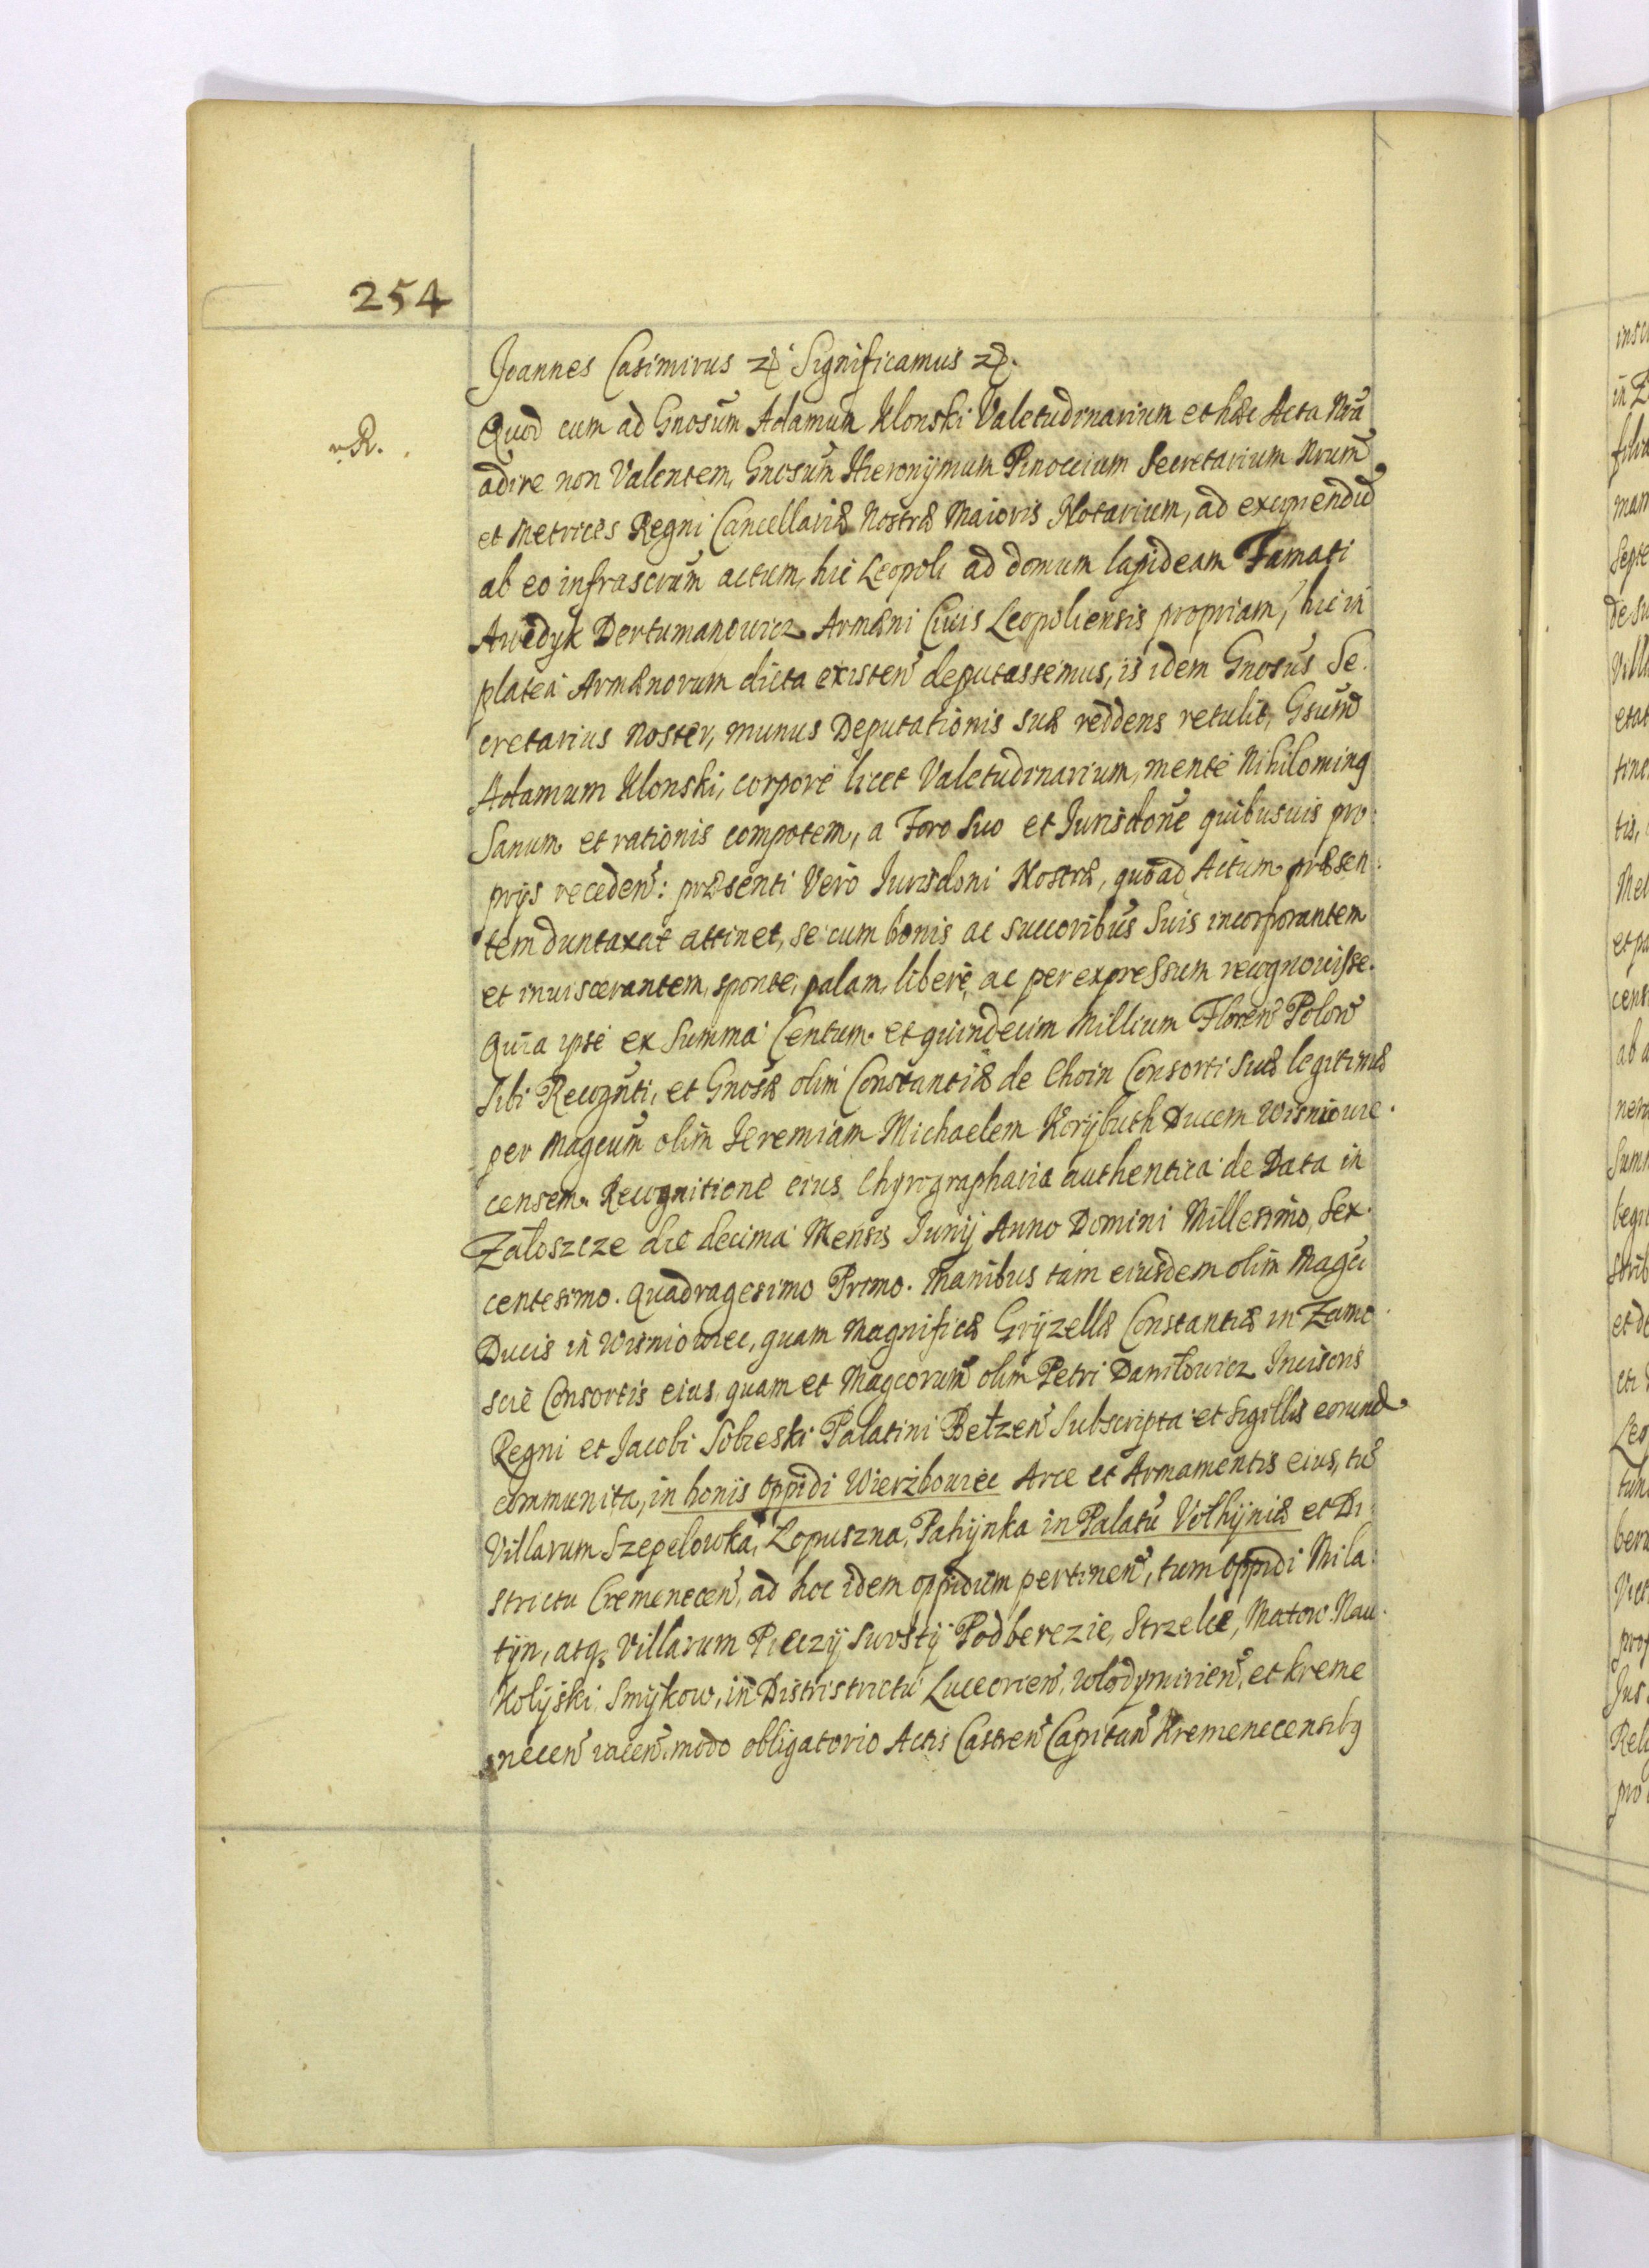 254
Joannes Casimirus etc. Significamus etc.
R.
Quod cum ad Gnosum Adamum Klonski Valetudinarium et hæc Acta Nra
adire non Valentem, Gnosum Hieronÿmum Pinoccium Secretarium Nrum
et Metrices Regni Cancellariæ Nostræ Maioris Notarium, ad excipiendũ
ab eo infrascrum actum, hic Leopoli ad domum lapideam Famati
Awedyk Dertumanowicz Armæni Civis Leopoliensis propriam, hic in
platea Armænorum dicta existen deputassemus, is idem Gnosus Se
cretarius Noster, munus Deputationis suæ reddens retulit, Gsum
Adamum Klonski, corpore licet Valetudinarium, mente Nihilominq
Sanum et rationis compotem, a Foro Suo et Jurisdone quibusuis pro
prijs receden: præsenti Vero Jurisdoni Nostræ, quoad Actum præsen
tem duntaxat attinet, se cum bonis ac succoribus Suis incorporantem
et inuiscerantem, sponte, palam, libere, ac per expressum recognouisse.
Quia ipse ex Summa Centum et quindecim Millium Floren Polon
Sibi Recognti, et Gnosæ olim Constantiæ de Choin Consorti suæ legitimæ
per Magcum olim Jeremiam Michaelem Korÿbuth Ducem Wisniowie
censem. Recognitione eius Chyrographaria authentica de Data in
Załoszcze die decima Mensis Junij Anno Domini Millesimo, Sex
centesimo. Quadragesimo Primo. Manibus tam eiusdem olim Magci
Ducis in Wisniowiec, quam Magnificæ Grÿzellæ Constantiæ in Zamo
scie Consortis eius, quam et Magcorum olim Petri Daniłowicz Incisoris
Regni et Jacobi Sobieski Palatini Bełzen Subscripta et Sigillis eorund
communita, in bonis oppidi Wierzbowiec Arce et Armamentis eius, tũ
Villarum Szepelowka, Lopuszna, Pahÿnka in Palatu Volhÿniæ et Di
strictu Cremenecen, ad hoc idem oppidum pertinen, tum oppidi Mila
tÿn, atq Villarum Pieczÿ Podberezie, Strzelce,
Smÿkow, in Districtrictu Luceorien, Wlodymirien, et Kreme
necen iacen. modo obligatorio Actis Castren Capitan Kremenecensibq